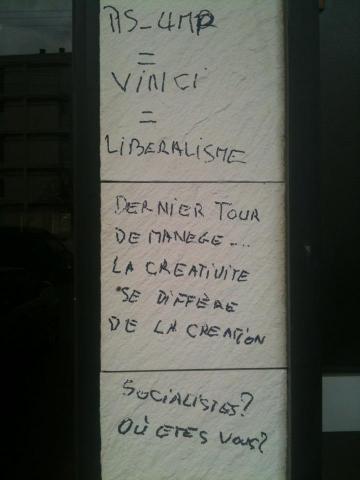 PS_UMP
=
VINCI
=
LIBERALISME
DERNIER TOUR
DE MANEGE....
LA CREATIVITE
SE DIFFÈRE
DE LA CREATION
SOCIALISTES?
OÙ ETES VOUS?